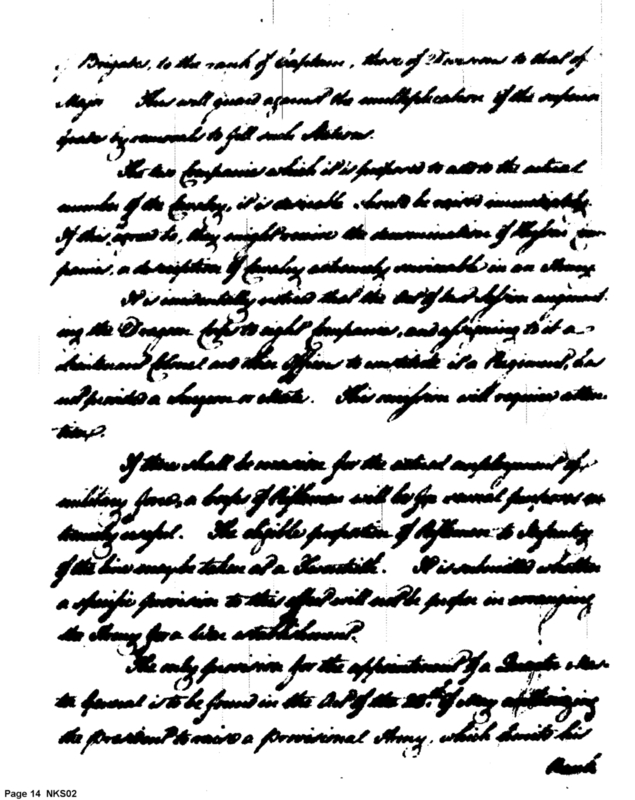 of Brigade, to the rank of Captain, those of Divisions to that of
Major This will guard against the multiplication of the superior
grades by removals to fill such Stations.
The two Companies which it is proposed to add to the actual
number of the Cavalry, it is desirable should be raised immediately.
If this, agreed to, they might receive the denomination of Hussar Com
panies, a description of Cavalry extremely serviceable in an Army
It is incidentally noticed that the Act of last Session augment
ing the Dragoon Corps to eight Companies, and assigning to it a
Lieutenant Colonel and other Officers to constitute it a Regiment, has
not provided a Surgeon or Mate. This omission will require atten
tion.
If there shall be occasion for the actual employment of
military force, a corps of Riflemen will be for several purposes ex
tremely useful. The eligible proportion of Riflemen to Infantry
of the line may be taken at a Twentieth. It is submitted whether
a specific provision to this effect will not be proper in arranging
the Army for a War establishment.
The only provision for the appointment of a Quarter Mas-
ter General is to be found in the Act of the 28th. of May authorizing
the President to raise a provisional Army, which limits his
Rank
Page 14 NKS02